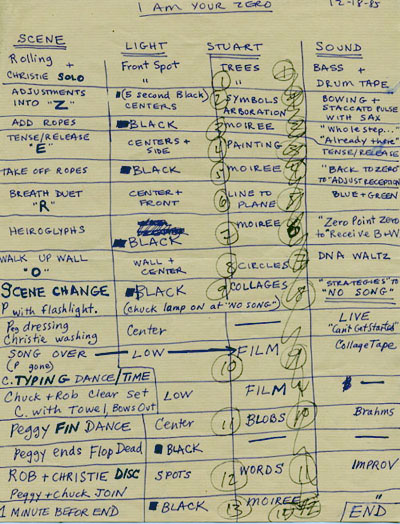 I AM YOUR ZERO 12-18-85
SCENE LIGHT STUART SOUND
Rolling + Front Spot TREES BASS +
CHRISTIE SOLO " 1 " 1 DRUM TAPE
ADJUSTMENTS (5 second Black) 2 SYMBOLS BOWING +
INTO "Z" CENTERS ARBORATION STACCATO PULSE
WITH SAX
ADD ROPES BLACK 3 MOIREE "Whole step..."
TENSE/RELEASE CENTERS + 4 PAINTING "Already there"
"E" SIDE TENSE/RELEASE
TAKE OFF ROPES BLACK 5 MOIREE "BACK TO ZERO"
to "ADJUST RECEPTION"
BREATH DUET CENTER + 6 LINE TO BLUE + GREEN
"R" FRONT PLANE
HEIROGLYPHS BLACK 7 MOIREE "Zero Point Zero"
to "Receive B+W"
WALK UP WALL WALL + 8 CIRCLES DNA WALTZ
"O" CENTER
SCENE CHANGE BLACK 9 COLLAGES "STRATEGIES" TO
P with flashlight. (Chuck lamp on at "NO SONG") "NO SONG"
Peg dressing Center LIVE
Christie washing "Can't Get Started"
SONG OVER LOW FILM Collage Tape
(P gone) 10
C. TYPING DANCE/TIME
Chuck + Rob Clear Set LOW FILM
C. with Towel, Bows Out
Peggy FIN DANCE Center 11 BLOBS 10 Brahms
Peggy ends Flop Dead BLACK
ROB + CHRISTIE DISC SPOTS 12 WORDS 11 IMPROV
Peggy + Chuck JOIN "
1 MINUTE BEFOR END BLACK 13 MOIREE END